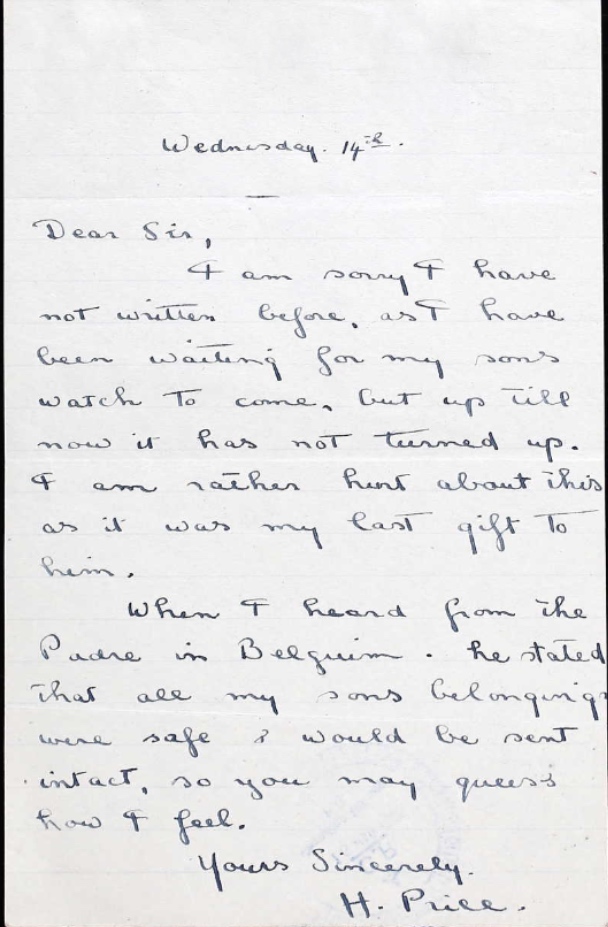 Wednesday. 14th.
Dear Sir,
I am sorry I have
not written before, as I have
been waiting for my son's
watch to come, but up till
now it has not turned up.
I am rather hurt about this
as it was my last gift to
him.
When I heard from the
Padre in Belguim. he stated
that all my sons belongings
were safe & would be sent
intact, so you may guess
how I feel.
Yours Sincerely.
H. Price.